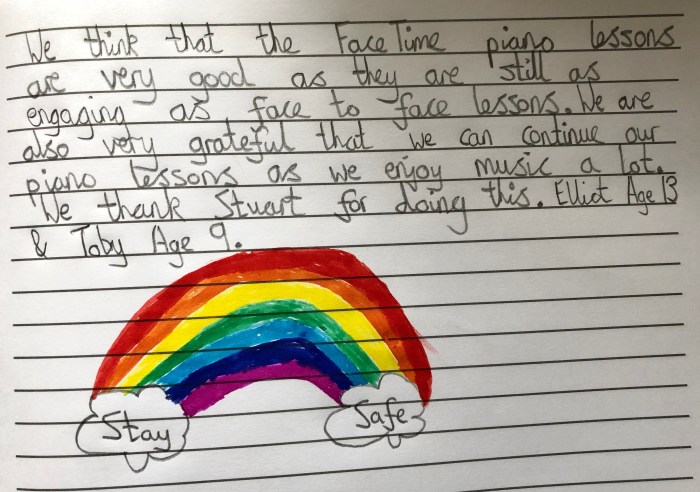 We think that the FaceTime piano lessons
are very good as they are still as
engaging as face to face lessons. We are
also very grateful that we can continue our
piano lessons as we enjoy music a lot.
We thank Stuart for doing this. Elliot Age 13
& Toby Age 9.
Stay Safe